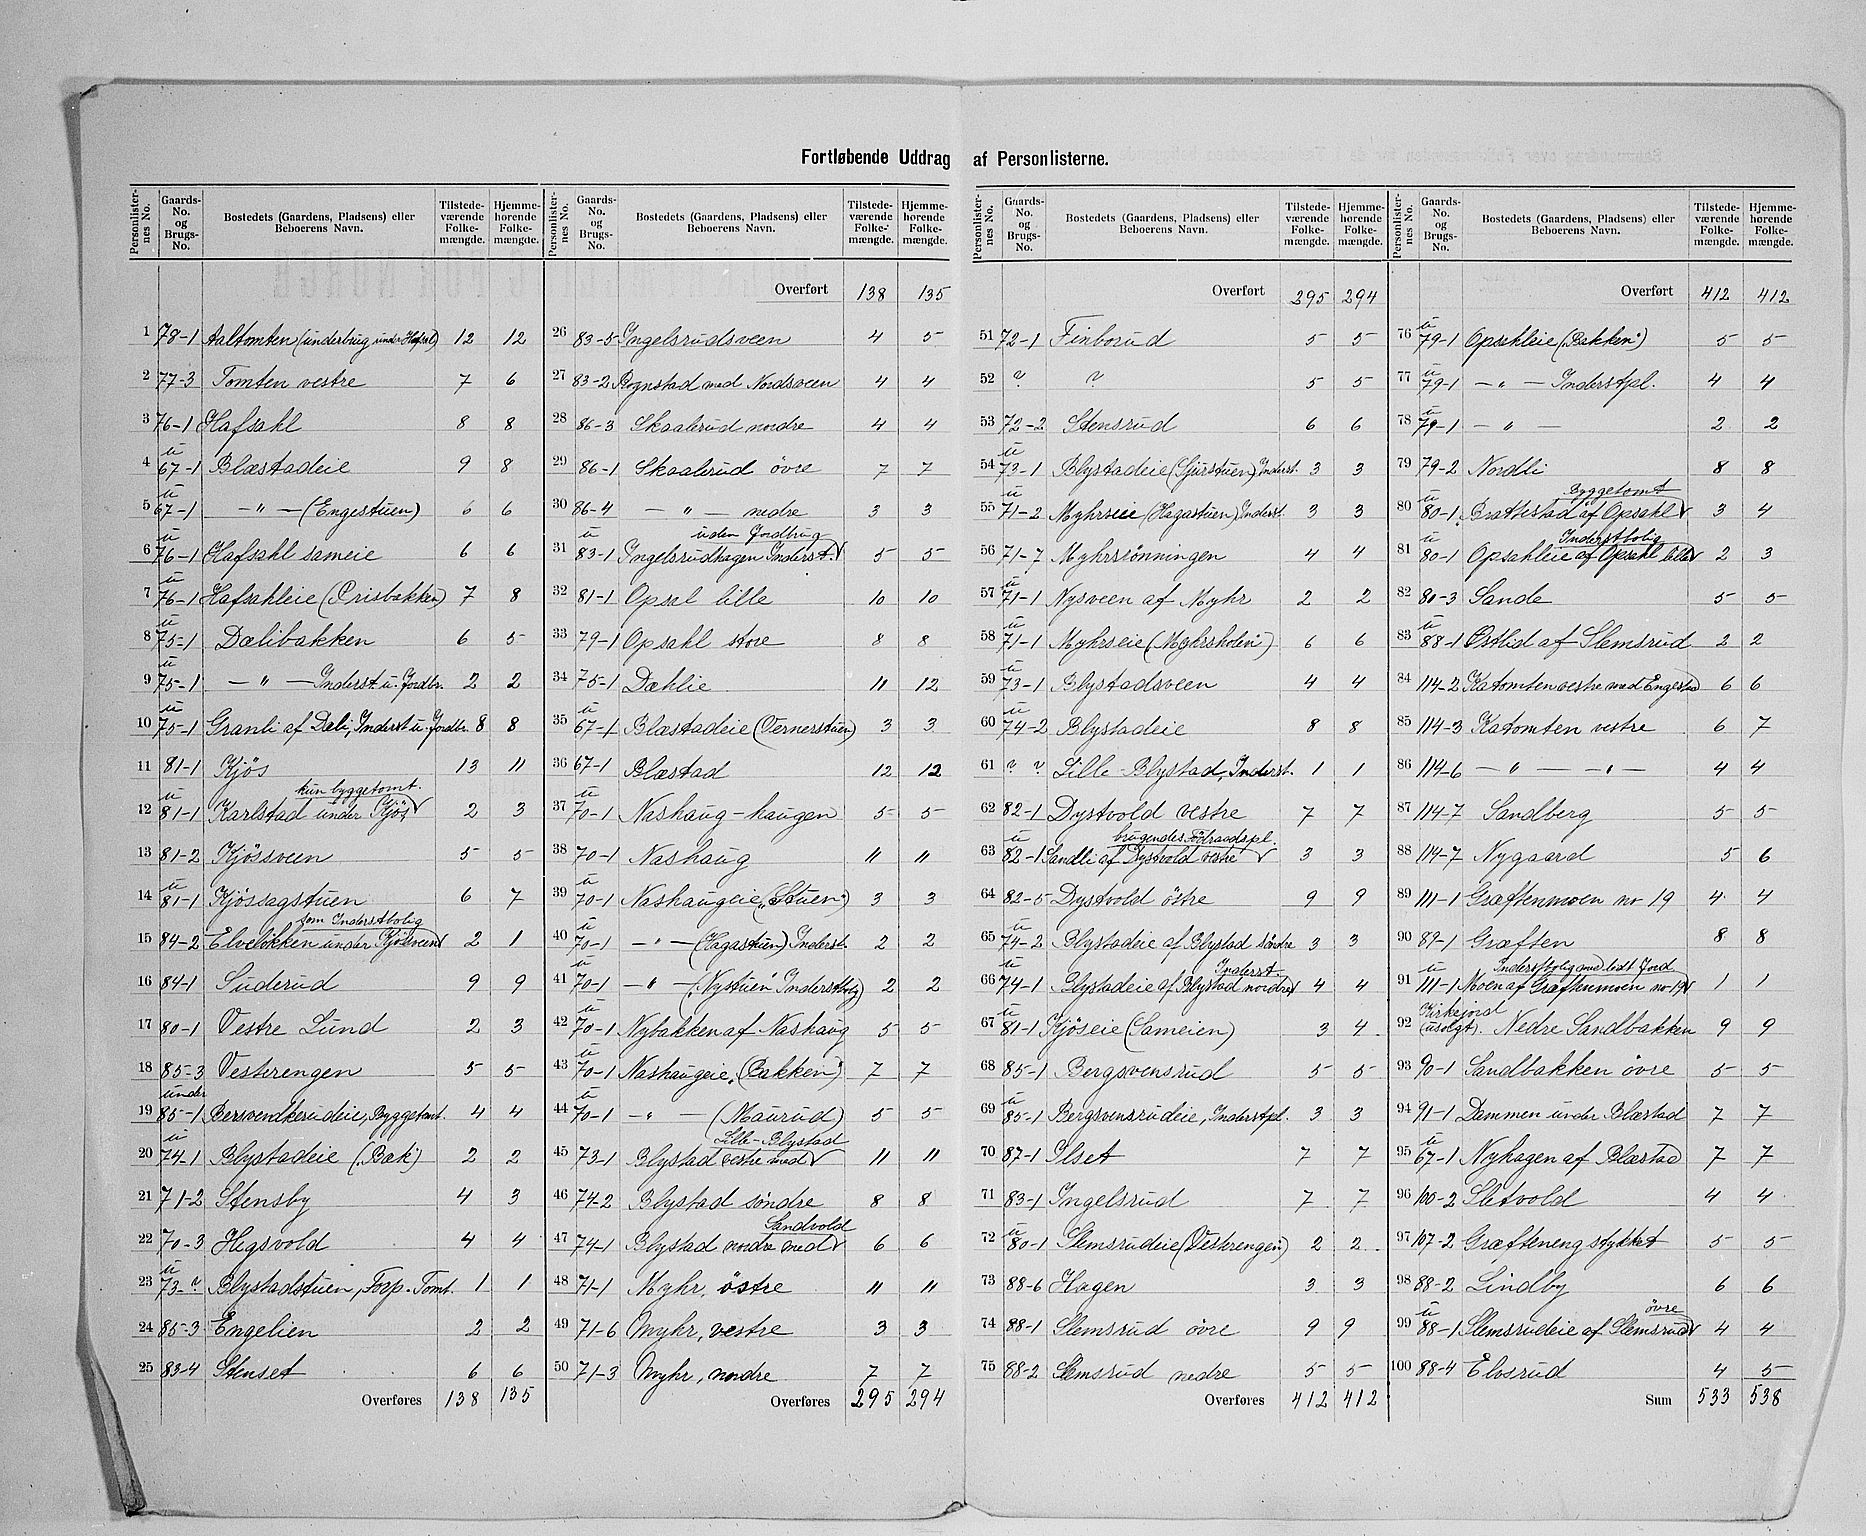 Fortløbende Uddrag af Personlisterne.
Personlister-nes No. | Gaards-No. og Brugs-No. | Bostedets (Gaardens, Pladsens) eller Beboerens Navn. | Tilstede-værende Folke-mængde. | Hjemme-hørende Folke-mængde.
Overført 138 135
Overført 295 294
Overført 412 412
1 78-1 Aaltomten (underbrug under Hafsal) 12 12
2 77-3 Tomten vestre 7 6
3 76-1 Hafsahl 8 8
4 u 67-1 Blæstadeie 9 8
5 u 67-1 —„— (Engestuen) 6 6
6 u 76-1 Hafsahl sameie 6 6
7 u 76-1 Hafsahleie (Prisbakken) 7 8
8 u 75-1 Dælibakken 6 5
9 u 75-1 —„— Inderst. u. Jordbr. 2 2
10 u 75-1 Granli af Dæli, Inderst u. Jordbr. 8 8
11 81-1 Kjös 13 11
kun byggetomt.
12 u 81-1 Karlstad under Kjös 2 3
13 81-2 Kjössveen 5 5
14 u 81-1 Kjössagstuen 6 7
som Inderstbolig
15 84-2 Elveløkken under Kjösveen 2 1
16 84-1 Suderud 9 9
17 80-1 Vestre Lund 2 3
18 85-3 Vesterengen 5 5
19 under 85-1 Bersvendkerudeie, Byggetomt. 4 4
20 u 74-1 Blystadeie („Bæk") 2 2
21 71-2 Stensby 4 3
22 70-3 Hegsvold 4 4
23 u 73-? Blystadstuen, Torp-Tomt. 1 1
24 85-3 Engelien 2 2
25 83-4 Stenset 6 6
Overføres 138 135
26 83-5 Ingelsrudsveen 4 5
27 83-2 Rognstad med Nordsveen 4 4
28 86-3 Skaalerud nordre 4 4
29 86-1 Skaalerud övre 7 7
30 86-4 —„— nedre 3 3
uden Jordbrug
31 u 83-1 Ingelsrudhagen Inderst. 5 5
32 81-1 Opsal lille 10 10
33 79-1 Opsahl store 8 8
34 75-1 Dæhlie 11 12
35 u 67-1 Blæstadeie (Vernerstuen) 3 3
36 67-1 Blæstad 12 12
37 u 70-1 Nashaug-haugen 5 5
38 70-1 Nashaug 11 11
39 u 70-1 Nashaugeie („Stuen") 3 3
40 u 70-1 —„— (Hagastuen) Inderst. 2 2
41 u 70-1 —„— („Nystuen" Inderstbolig) 2 2
42 u 70-1 Nybakken af Nashaug 5 5
43 u 70-1 Nashaugeie, (Bakken") 7 7
44 u 70-1 —„— (Maurud) 5 5
Lille-Blystad
45 73-1 Blystad vestre med 11 11
46 74-2 Blystad söndre 8 8
Sandvold
47 74-1 Blystad nordre med 6 6
48 71-1 Myhr, östre 11 11
49 71-6 Myhr, vestre 3 3
50 71-3 Myhr, nordre 7 7
Overføres 295 294
51 72-1 Finborud 5 5
52 ? ? 5 5
53 72-2 Stensrud 6 6
54 u 73-1 Blystadeie (Sjurstuen) Inderst. 3 3
55 u 71-2 Myhrseie (Hagastuen) Inderst. 3 3
56 71-7 Myhrsrönningen 4 4
57 u 71-1 Nysveen af Myhr 2 2
58 u 71-1 Myhrseie („Myhrsholen") 6 6
59 u 73-1 Blystadsveen 4 4
60 u 74-2 Blystadeie 8 8
61 ? ? Lille-Blystad, Inderst. 1 1
62 82-1 Dystvold vestre 7 7
63 u 82-1 Sandli af Dystvold vestre 3 3
64 82-5 Dystvold östre 9 9
65 u 74-2 Blystadeie af Blystad söndre 3 3
Inderst.
66 u 74-1 Blystadeie af Blystad nordre 4 4
67 u 81-1 Kjöseie (Sameien) 3 4
68 85-1 Bergsvensrud 5 5
69 u 85-1 Bergsvensrudeie, Inderstpl. 3 3
70 87-1 Ilset 7 7
71 83-1 Ingelsrud 7 7
72 u 80-1 Slemsrudeie (Vesterengen) 2 2
73 88-6 Hagen 3 3
74 88-1 Slemsrud övre 9 9
75 88-2 Slemsrud nedre 5 5
Overføres 412 412
76 u 79-1 Opsahleie („Bakken") 5 5
77 u 79-1 —„— Inderstpl. 4 4
78 u 79-1 —„— 2 2
79 79-2 Nordli 8 8
Byggetomt
80 u 80-1 Brattestad af Opsahl 3 4
Inderstbolig
81 u 80-1 Opsahleie af Opsahl lille 2 3
82 80-3 Sande 5 5
83 u 88-1 Østlid af Slemsrud 2 2
84 114-2 Katomten vestre med Engestad 6 6
85 114-3 Katomten vestre 6 7
86 114-6 —„— —„— 4 4
87 114-7 Sandberg 5 5
88 114-7 Nygaard 5 6
89 111-1 Græftenmoen no 19 4 4
90 89-1 Græften 8 8
Inderstbolig med lidt Jord
91 u 111-1 Moen af Græftenmoen no 19 1 1
92 Kirkejord (usolgt). Nedre Sandbakken 9 9
93 90-1 Sandbakken övre 5 5
94 91-1 Dammen under Blæstad 7 7
95 u 67-1 Nyhagen af Blæstad 7 7
96 100-2 Sletvold 4 4
97 107-2 Græftenengstykket 5 5
98 88-2 Lindby 6 6
övre
99 u 88-1 Slemsrudeie af Slemsrud 4 4
100 88-4 Elvsrud 4 5
Sum 533 538